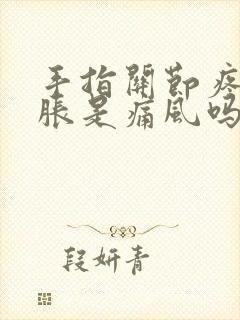 手指關節疼
脹是痛風嗎
段妍青